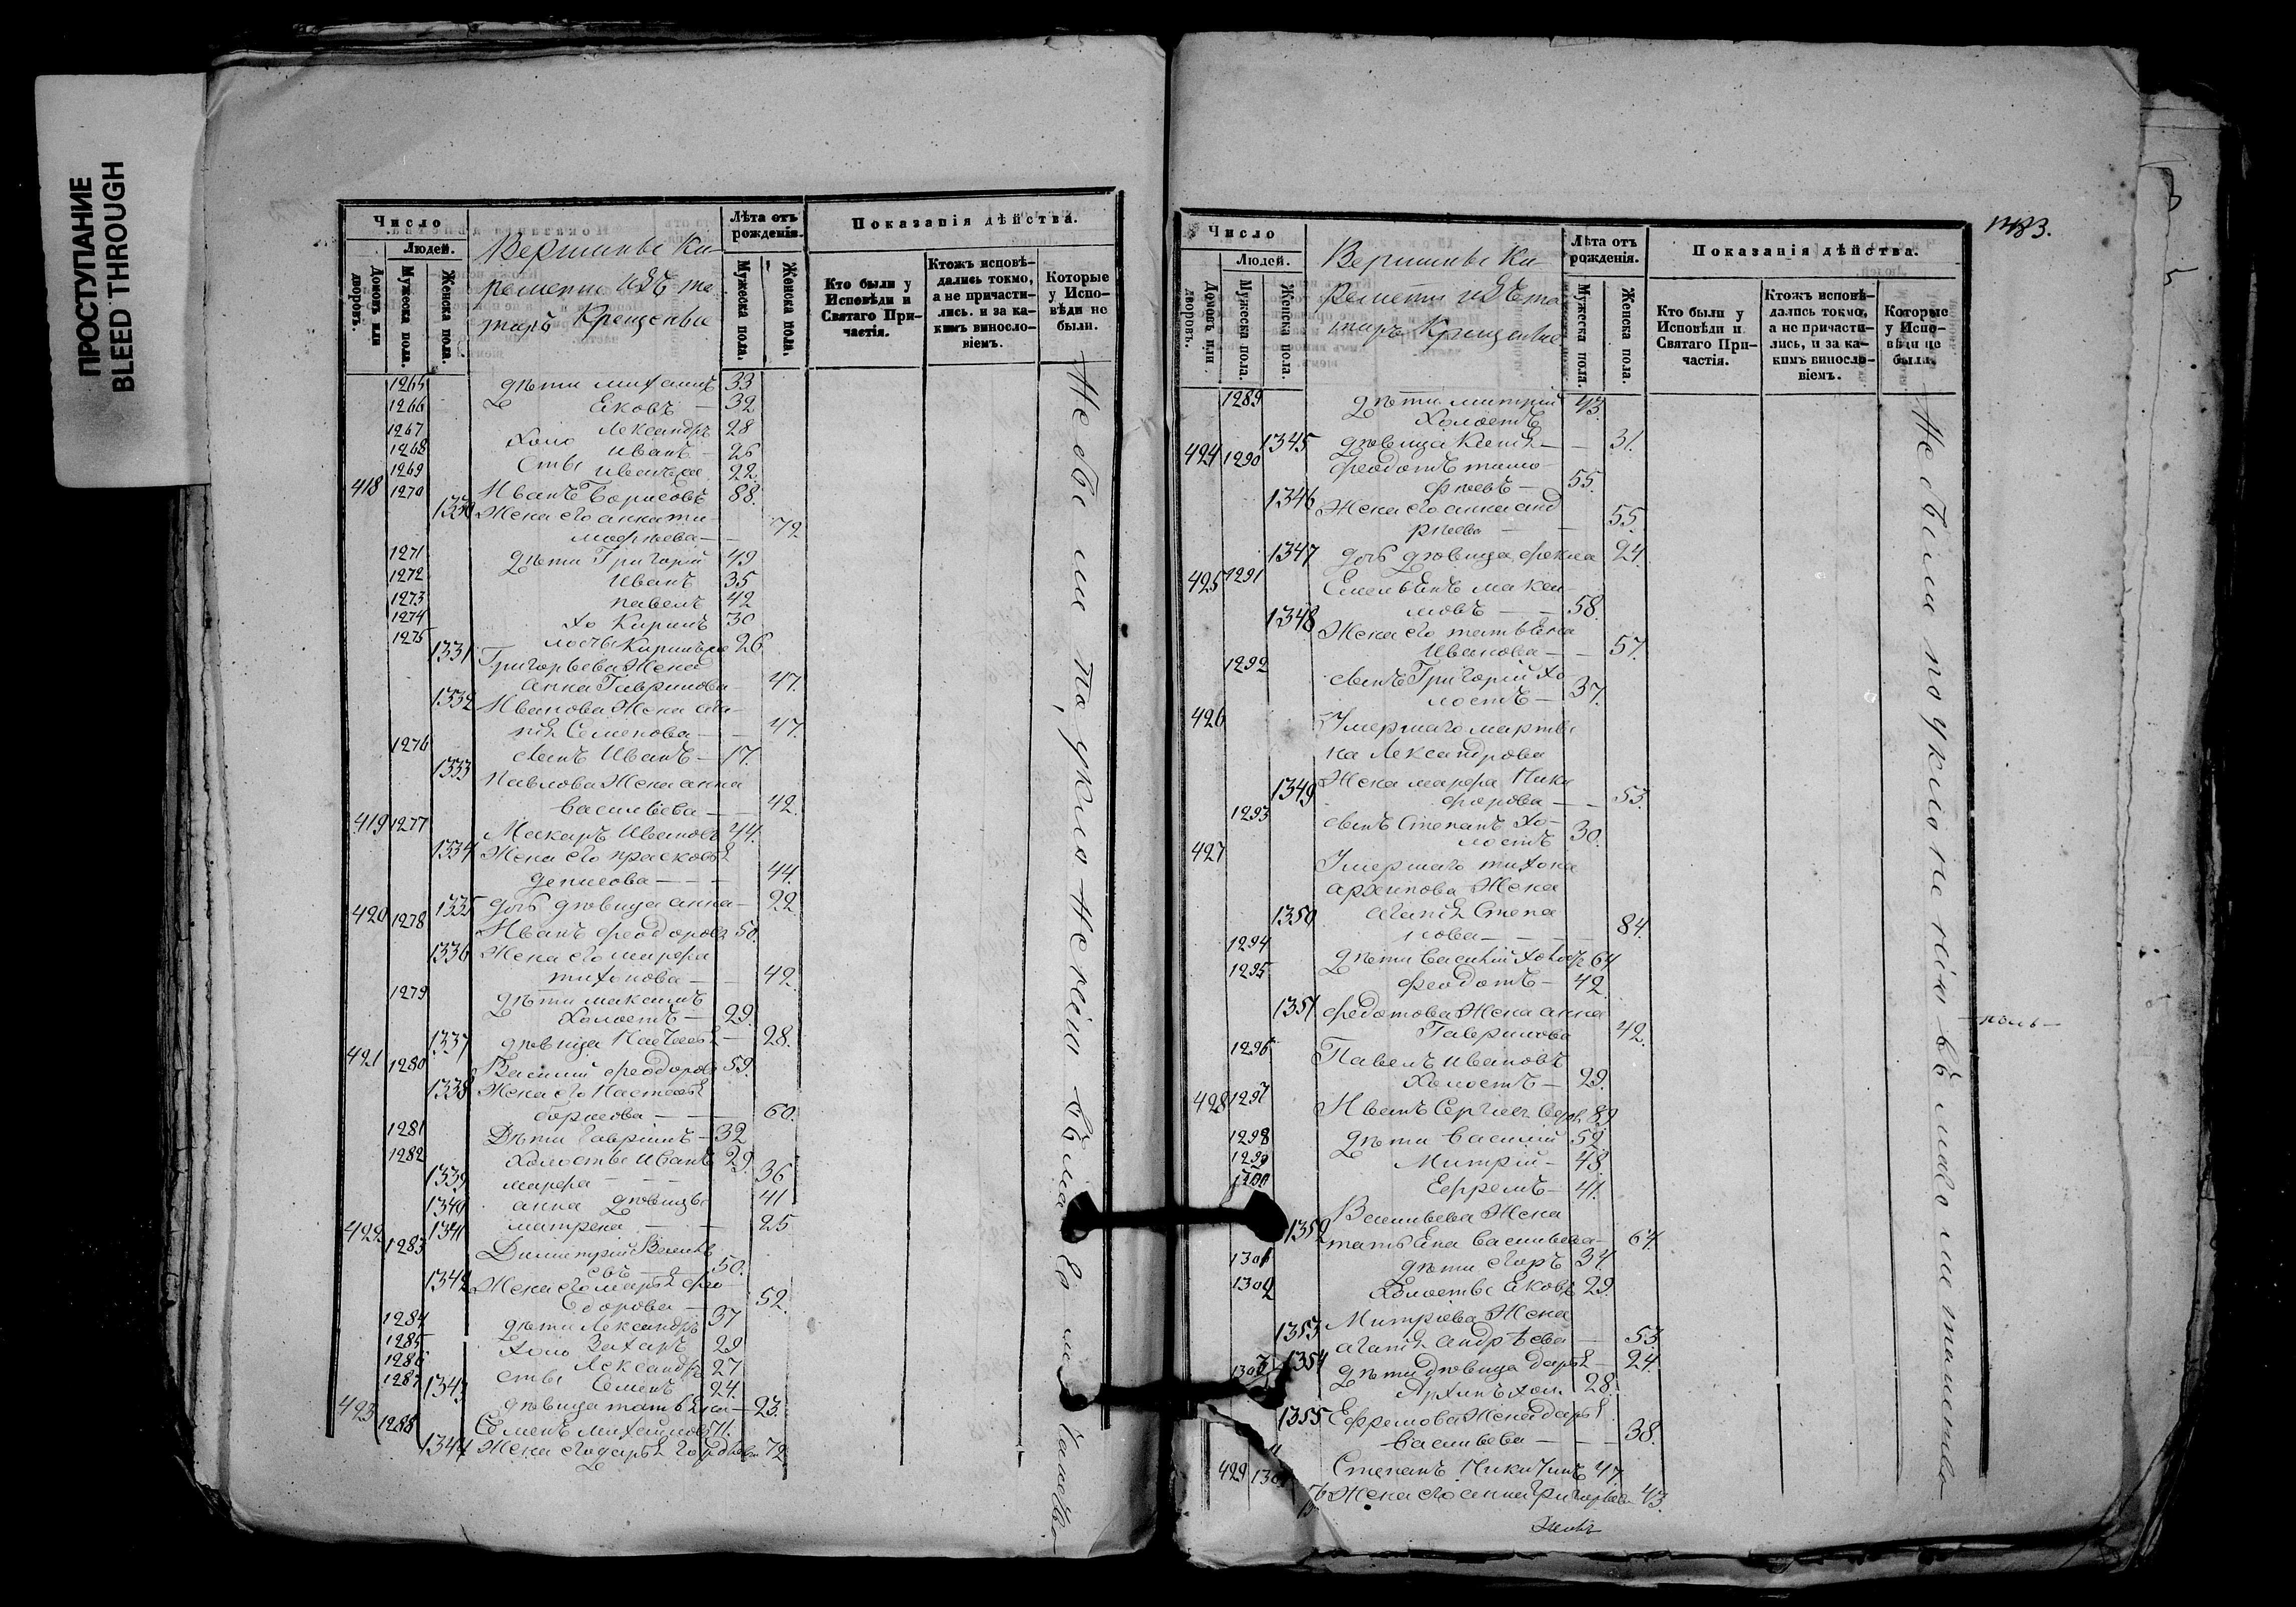 ПРОСТУПАНИЕ
BLEED THROUGH
Число
Людей.
Домовъ или дворовъ.
Мужеска пола.
Женска пола.
Вершины Ки-
ремети изъ та
таръ Крещены
Лѣта отъ рожденія.
Мужеска пола.
Женска пола.
Показанія дѣйства.
Кто были у Исповѣди и Святаго Причастія.
Ктожъ исповѣдались токмо, а не причастились. и за какимъ винословіемъ.
Которые у Исповѣди не были.
1265 дѣти михаилъ 33
1266 Яковъ — 32
1267 Лександръ 28
1268 Холо иванъ — 26
1269 сты иванъже 22
418 1270 Иванъ Борисовъ 88.
1330 Жена его анна ти-
мофѣева — 72
1271 дѣти Григорій 49
1272 иванъ 35
1273 павелъ 42
1274 хо Кирилъ 30
1275 лосты Кирилъже 26
1331 Григорьева Жена
анна Гаврилова 47.
1332 Иванова Жена ага-
пія Семенова — 47.
1276 сынъ Иванъ — 17.
1333 Павлова Жена анна
васильева — 42.
419 1277 Макаръ Ивановъ 44.
1334 Жена его прасковья
денисова — 44.
1335 дочь дѣвица анна — 22
420 1278 Иванъ феодоровъ 50.
1336 Жена его марфа
тихонова — 42.
1279 дѣти максимъ
холостъ — 29.
1337 дѣвица Настасья — 28.
421 1280 Василий феодоровъ 59.
1338 Жена его Настасья
борисова — 60.
1281 Дѣти гаврилъ — 32
1282 холосты иванъ 29.
1339 марфа — 36
1340 анна дѣвицы 41
1341 матрена — 25
422 1283 Димитрий Василь
евъ — 50.
1342 Жена его марья фео
дорова — 52.
1284 дѣти Лександръ 37
1285 холо Захаръ 29
1286 Лександръ 27
1287 сты Семенъ 24.
1343 дѣвица татьяна — 23.
423 1288 Семенъ михайловъ 71.
1344 Жена его дарья 72.
Не были по укло не нію въ
Число
Людей.
Домовъ или дворовъ.
Мужеска пола.
Женска пола.
Вершины Ки
ремети изъ та
таръ Крещены
Лѣта отъ рожденія.
Мужеска пола.
Женска пола.
Показанія дѣйства.
Кто были у Исповѣди и Святаго Причастія.
Ктожъ исповѣдались токмо, а не причастились, и за какимъ винословіемъ.
Которые у Исповѣди не были.
1483.
1289 дѣти митрій 43.
Холостъ
1345 дѣвица Ксенія — 31.
424 1290 феодотъ тимо
фѣевъ — 55.
1346 Жена его анна анд
рѣева — 55.
1347 дочь дѣвица фекла 24.
425 1291 Емельянъ макси
мовъ — 58.
1348 Жена его татьяна
иванова — 57.
1292 сынъ Григорій хо
лостъ — 37.
426 Умершаго марты
на Лександрова
1349 Жена марфа Ники
форова — 53.
1293 сынъ степанъ хо-
лостъ 30.
427 Умершаго тихона
архипова Жена
1350 агапія Степа
нова — 84.
1294 дѣти василій холос 64
1295 феодотъ — 42
1351 федотова Жена анна
Гаврилова 42.
1296 Павелъ ивановъ
холостъ — 29.
428 1297 Иванъ Сергѣевъ 89
1298 дѣти василий 52
1299 Митрій — 48.
1300 Ефремъ — 41.
Васильева Жена
1352 татьяна васильева — 64.
1301 дѣти егоръ 34.
1302 холосты Яковъ 29.
Митріева Жена
1353 агапія андрѣева — 53.
1354 дѣти дѣвица дарья — 24.
1303 Архипъ хол. 28.
1355 Ефремова Жена дарья
васильева — 38.
429 1304 Степанъ Никитинъ 47
Жена его анна Григорьева 43.
Не были по укло не нію въ